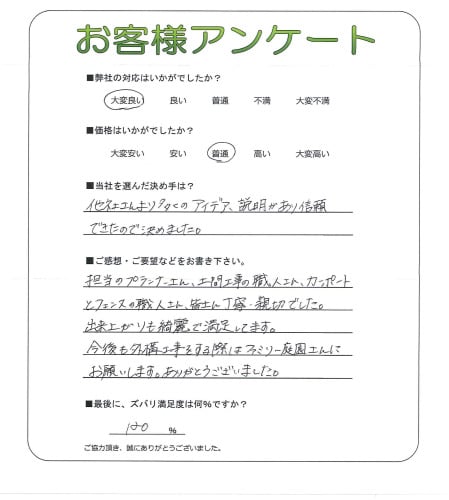 お客様アンケート
■弊社の対応はいかがでしたか？
大変良い 良い 普通 不満 大変不満
■価格はいかがでしたか？
大変安い 安い 普通 高い 大変高い
■当社を選んだ決め手は？
他社さんより多くのアイデア、説明があり信頼
できたので決めました。
■ご感想・ご要望などをお書き下さい。
担当のプランナーさん、土間工事の職人さん、カーポート
とフェンスの職人さん、皆さん丁寧・親切でした。
出来上がりも綺麗で満足してます。
今後も外構工事をする際はファミリー庭園さんに
お願いします。ありがとうございました。
■最後に、ズバリ満足度は何％ですか？
120 ％
ご協力頂き、誠にありがとうございました。